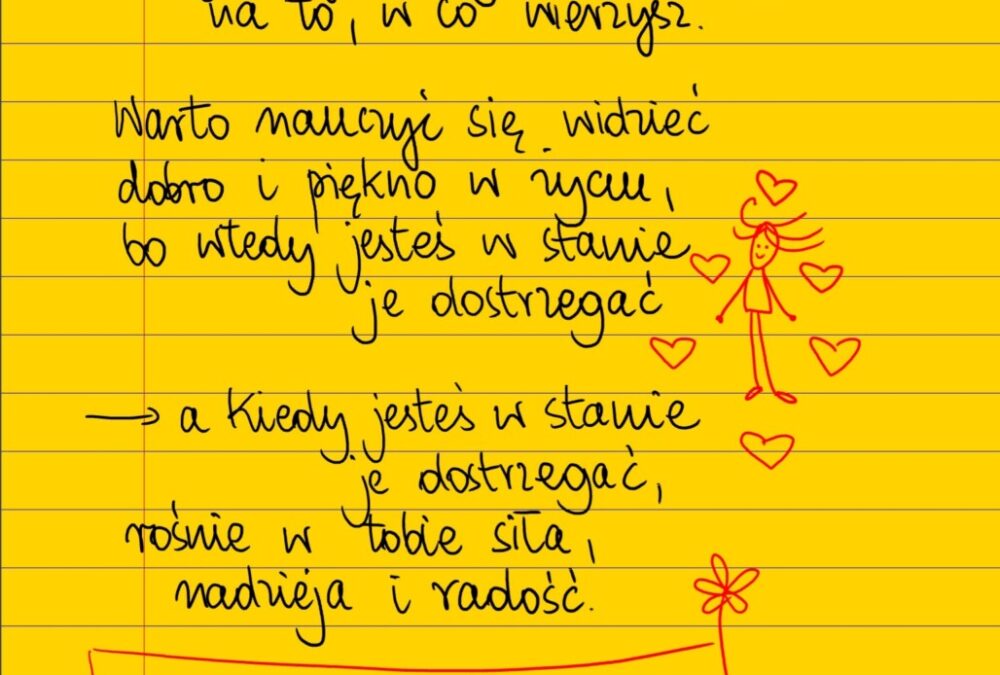 na to, w co wierzysz.
Warto nauczyć się widzieć
dobro i piękno w życiu,
bo wtedy jesteś w stanie
je dostrzegać
→ a kiedy jesteś w stanie
je dostrzegać,
rośnie w tobie siła,
nadzieja i radość.